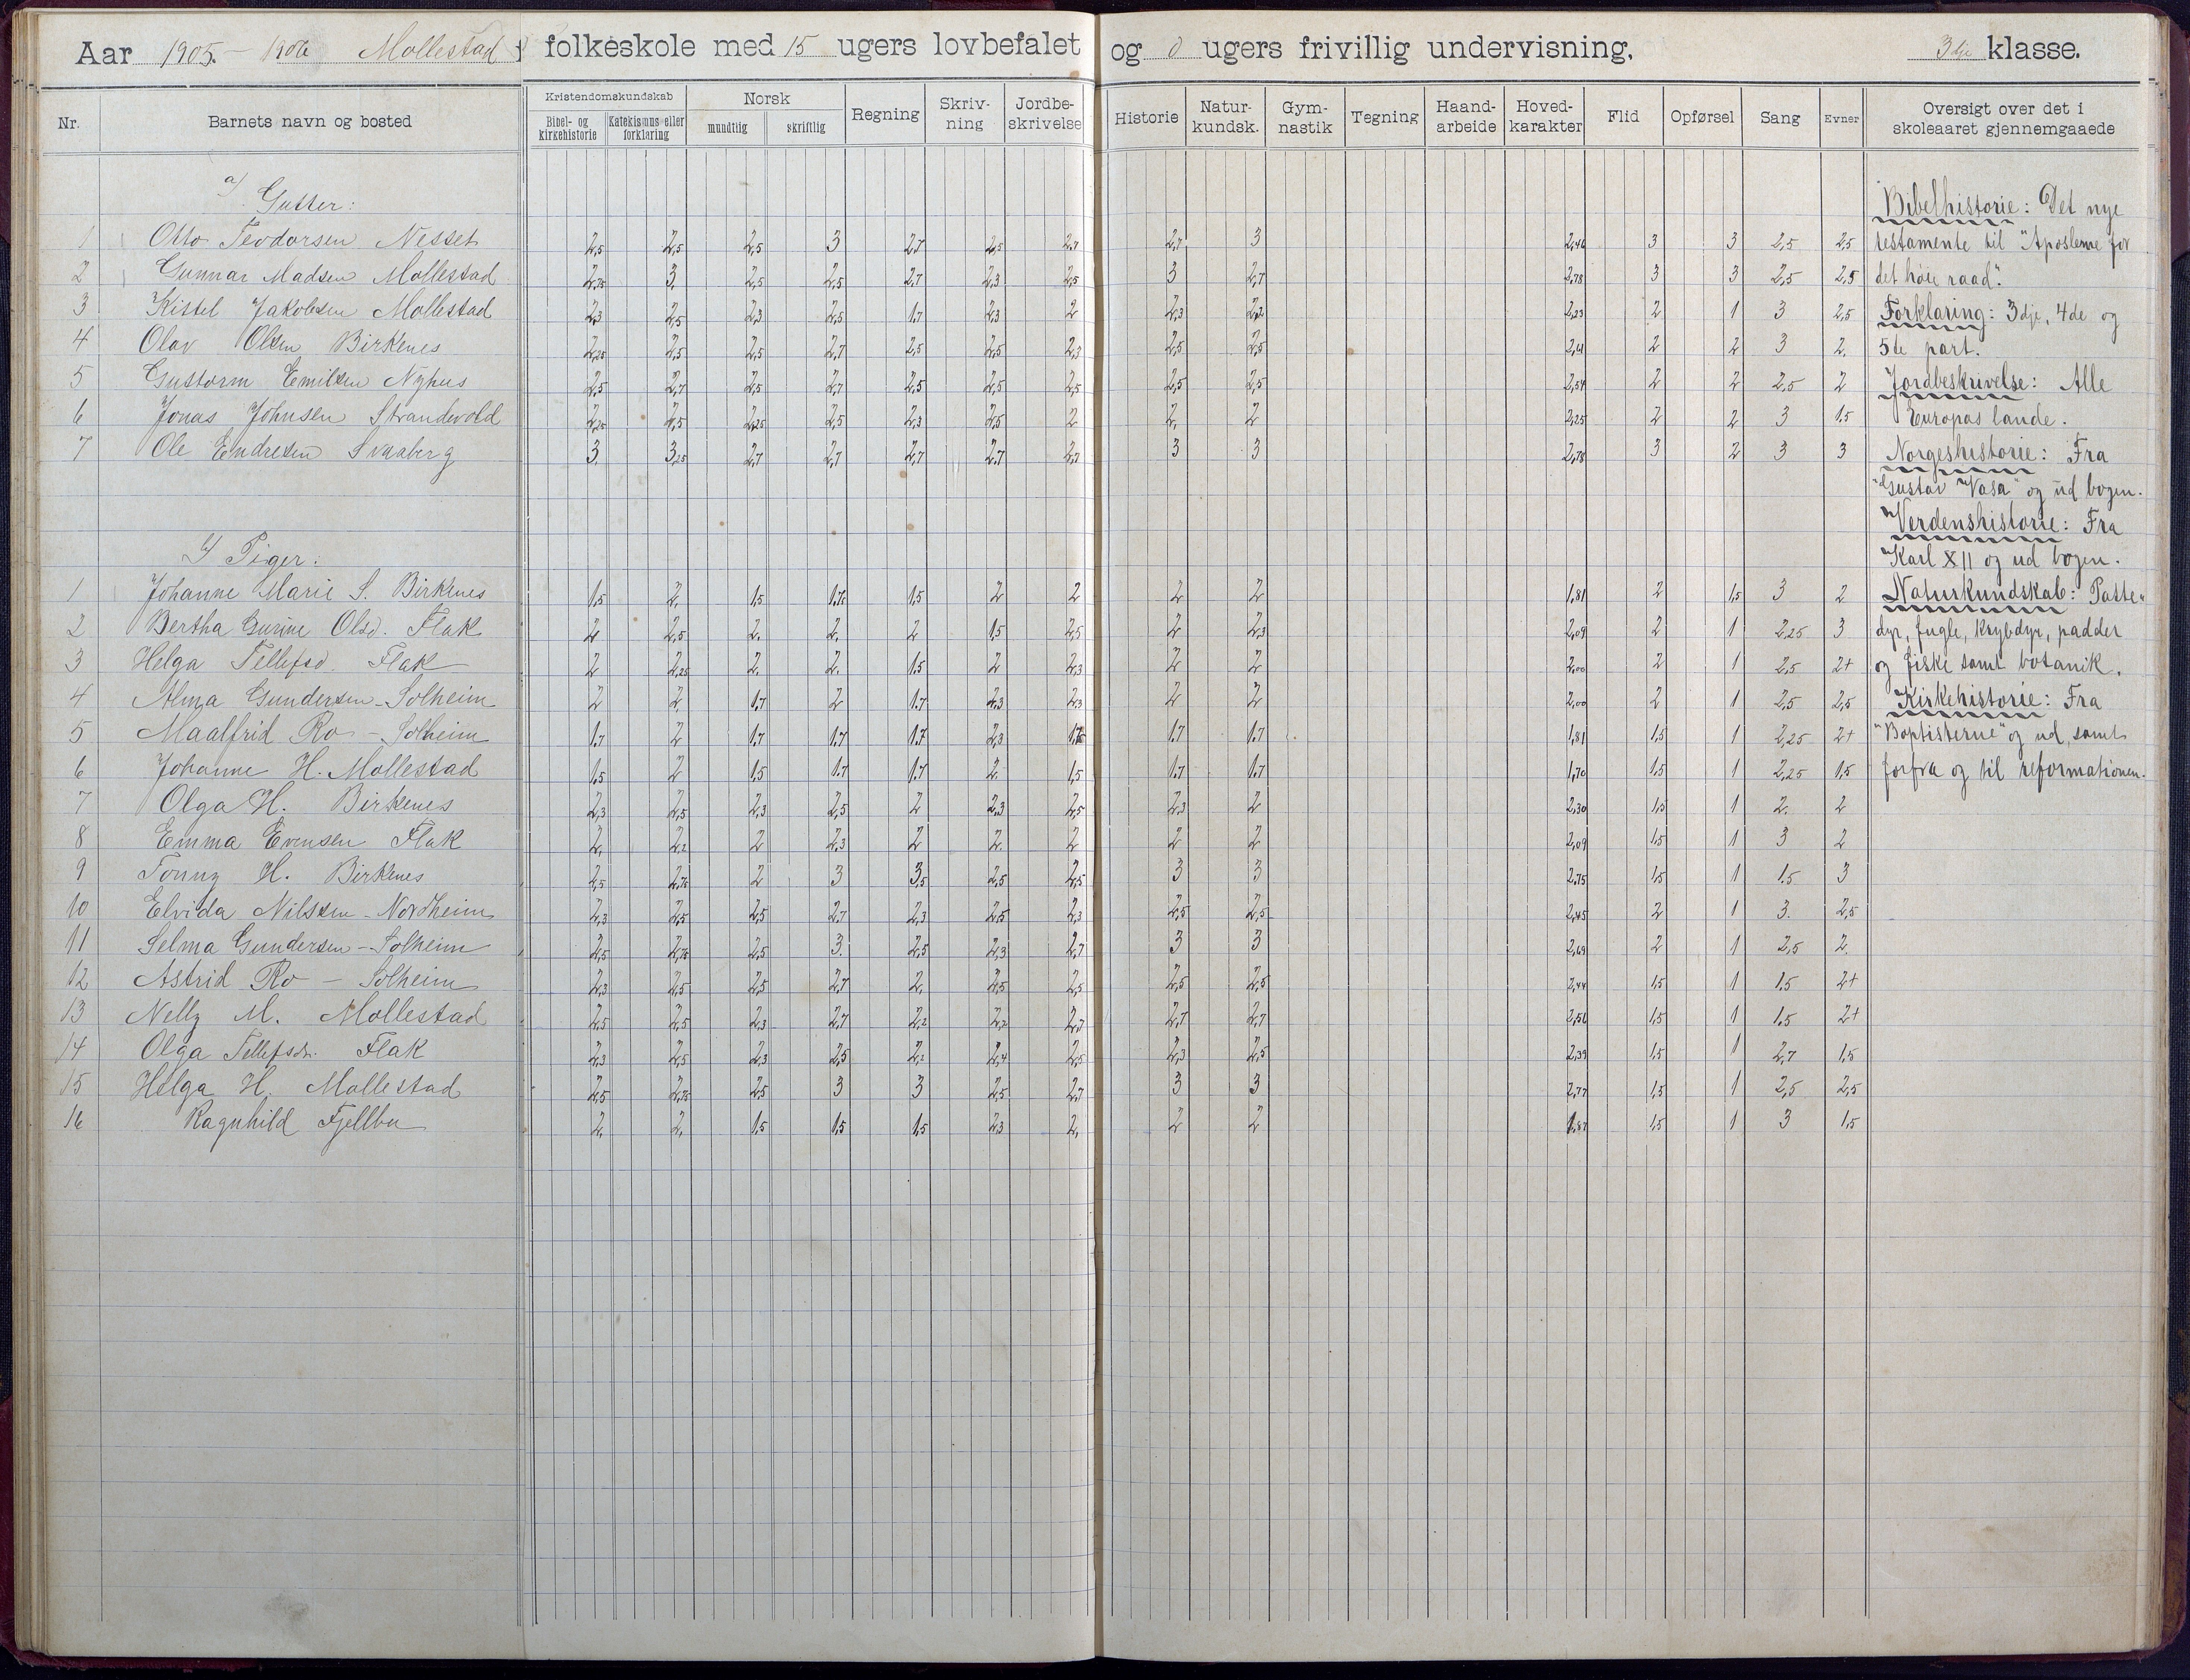 Aar 1905. – 1906 Mollestad folkeskole med 15 ugers lovbefalet og 0 ugers frivillig undervisning, 3die klasse.
Nr. Barnets navn og bosted Kristendomskundskab Bibel- og kirkehistorie Katekismus eller forklaring Norsk mundtlig skriftlig Regning Skrivning Jordbeskrivelse Historie Naturkundsk. Gymnastik Tegning Haandarbeide Hovedkarakter Flid Opførsel Sang Evner Oversigt over det i skoleaaret gjennemgaaede
a) Gutter:
1 Otto Teodorsen Nesset 2,5 2,5 2,5 3 2,7 2,5 2,7 2,7 3 2,46 3 3 2,5 2,5
2 Gunnar Madsen Mollestad 2,75 3, 2,5 2,5 2,7 2,3 2,5 3 2,7 2,78 3 3 2,5 2,5
3 Kittel Jakobsen Mollestad 2,3 2,5 2,3 2,5 1,7 2,3 2 2,3 2,2 2,23 2 1 3 2,5
4 Olav Olsen Birkenes 2,25 2,5 2,5 2,7 2,5 2,5 2,3 2,5 2,5 2,41 2 2 3 2.
5 Guttorm Emilsen Nyhus 2,5 2,7 2,5 2,7 2,5 2,5 2,5 2,5 2,5 2,54 2 2 2,5 2
6 Jonas Johnsen Strandevold 2,25 2,5 2,25 2,5 2,3 2,5 2 2, 2 2,25 2 2 3 1,5
7 Ole Endresen Svaaberg 3. 3,25 2,7 2,7 2,7 2,7 2,7 3 3 2,78 3 2 3 3
b) Piger:
1 Johanne Marie S. Birkenes 1,5 2, 1,5 1,75 1,5 2 2 2 2 1,81 2 1,5 3 2
2 Bertha Gurine Olsd. Flak 2 2,5 2. 2. 2 1,5 2,5 2 2,3 2,09 2 1 2,25 3
3 Helga Tellefsd. Flak 2 2,25 2. 2. 1,5 2 2,3 2 2 2,00 2 1 2,5 2+
4 Alma Gundersen – Solheim 2 2 1,7 2 1,7 2,3 2,3 2 2 2,00 2 1 2,5 2,5
5 Maalfrid Ro – Solheim 1,7 2 1,7 1,7 1,7 2,3 1,75 1,7 1,7 1,81 1,5 1 2,25 2+
6 Johanne H. Mollestad 1,5 2 1,5 1,7 1,7 2 1,5 1,7 1,7 1,70 1,5 1 2,25 1,5
7 Olga H. Birkenes 2,3 2,5 2,3 2,5 2 2,3 2,5 2,3 2 2,30 1,5 1 2. 2
8 Emma Evensen Flak 2, 2,2 2 2,3 2 2. 2 2 2 2,09 1,5 1 3 2
9 Tonny H. Birkenes 2,5 2,75 2 3 3,5 2,5 2,5 3 3 2,75 1,5 1 1.5 3
10 Elvida Nilssen – Nordheim 2,3 2,5 2,5 2,7 2,3 2,5 2,3 2,5 2,5 2,45 2 1 3. 2,5
11 Selma Gundersen – Solheim 2,5 2,75 2,5 3. 2,5 2,3 2,7 3 3 2,69 2 1 2,5 2.
12 Astrid Ro – Solheim 2,3 2,5 2,5 2,7 2, 2,5 2,5 2,5 2,5 2,44 1,5 1 1.5 2+
13 Nelly M. Mollestad 2,5 2,5 2,3 2,7 2,2 2,2 2,7 2,7 2,7 2,56 1,5 1 1.5 2+
14 Olga Tellefsdr. Flak 2,3 2,5 2,3 2,5 2,2 2,4 2,5 2,3 2,5 2,39 1,5 1 2,7 1,5
15 Helga H. Mollestad 2,5 2,75 2,5 3 3 2,5 2,7 3 3 2,77 1,5 1 2,5 2,5
16 Ragnhild Fjellbu 2, 2, 1,5 1,5 1,5 2,3 2, 2 2 1,87 1,5 1 3 1,5
Bibelhistorie: Det nye
testamente til "Apostlerne for
det høie raad".
Forklaring: 3dje, 4de og
5te part.
Jordbeskrivelse: Alle
Europas lande.
Norgeshistorie: Fra
"Gustav Vasa" og ud bogen.
Verdenshistorie: Fra
Karl XII og ud bogen.
Naturkundskab: Patte-
dyr, fugle, krybdyr, padder
og fiske samt botanik.
Kirkehistorie: Fra
"Baptisterne" og ud, samt
forfra og til reformationen.